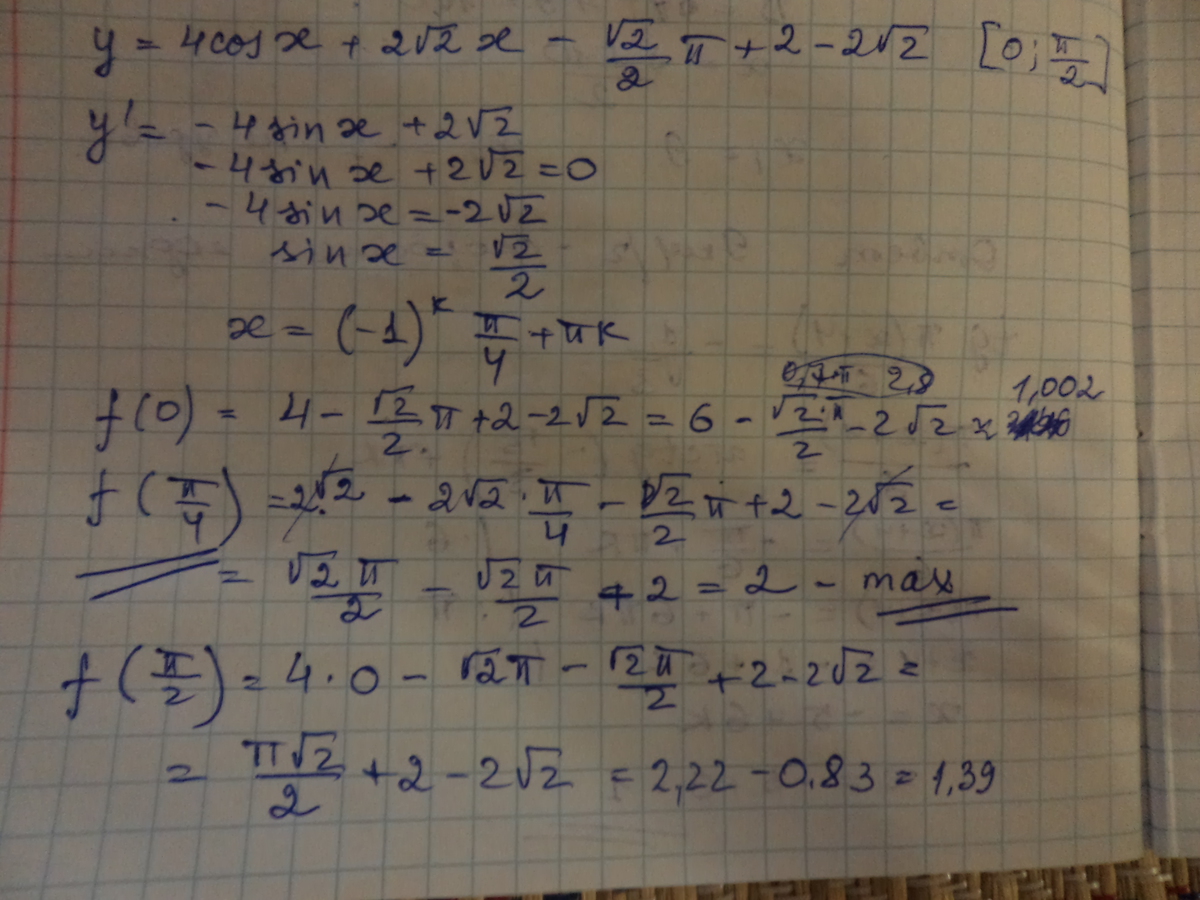 y = 4cos x + 2√2 x - √2/2 π + 2 - 2√2 [0; π/2]
y' = - 4 sin x + 2√2
- 4 sin x + 2√2 = 0
- 4 sin x = -2√2
sin x = √2/2
x = (-1)^k π/4 + πk
0,7·π 2,8
f(0) = 4 - √2/2 π + 2 - 2√2 = 6 - √2·π/2 - 2√2 ≈ 1,002
f(π/4) = 2√2 - 2√2 · π/4 - √2/2 π + 2 - 2√2 =
= √2 π/2 - √2 π/2 + 2 = 2 - max
f(π/2) = 4 · 0 - √2π - √2π/2 + 2 - 2√2 =
= π√2/2 + 2 - 2√2 = 2,22 - 0.83 = 1,39